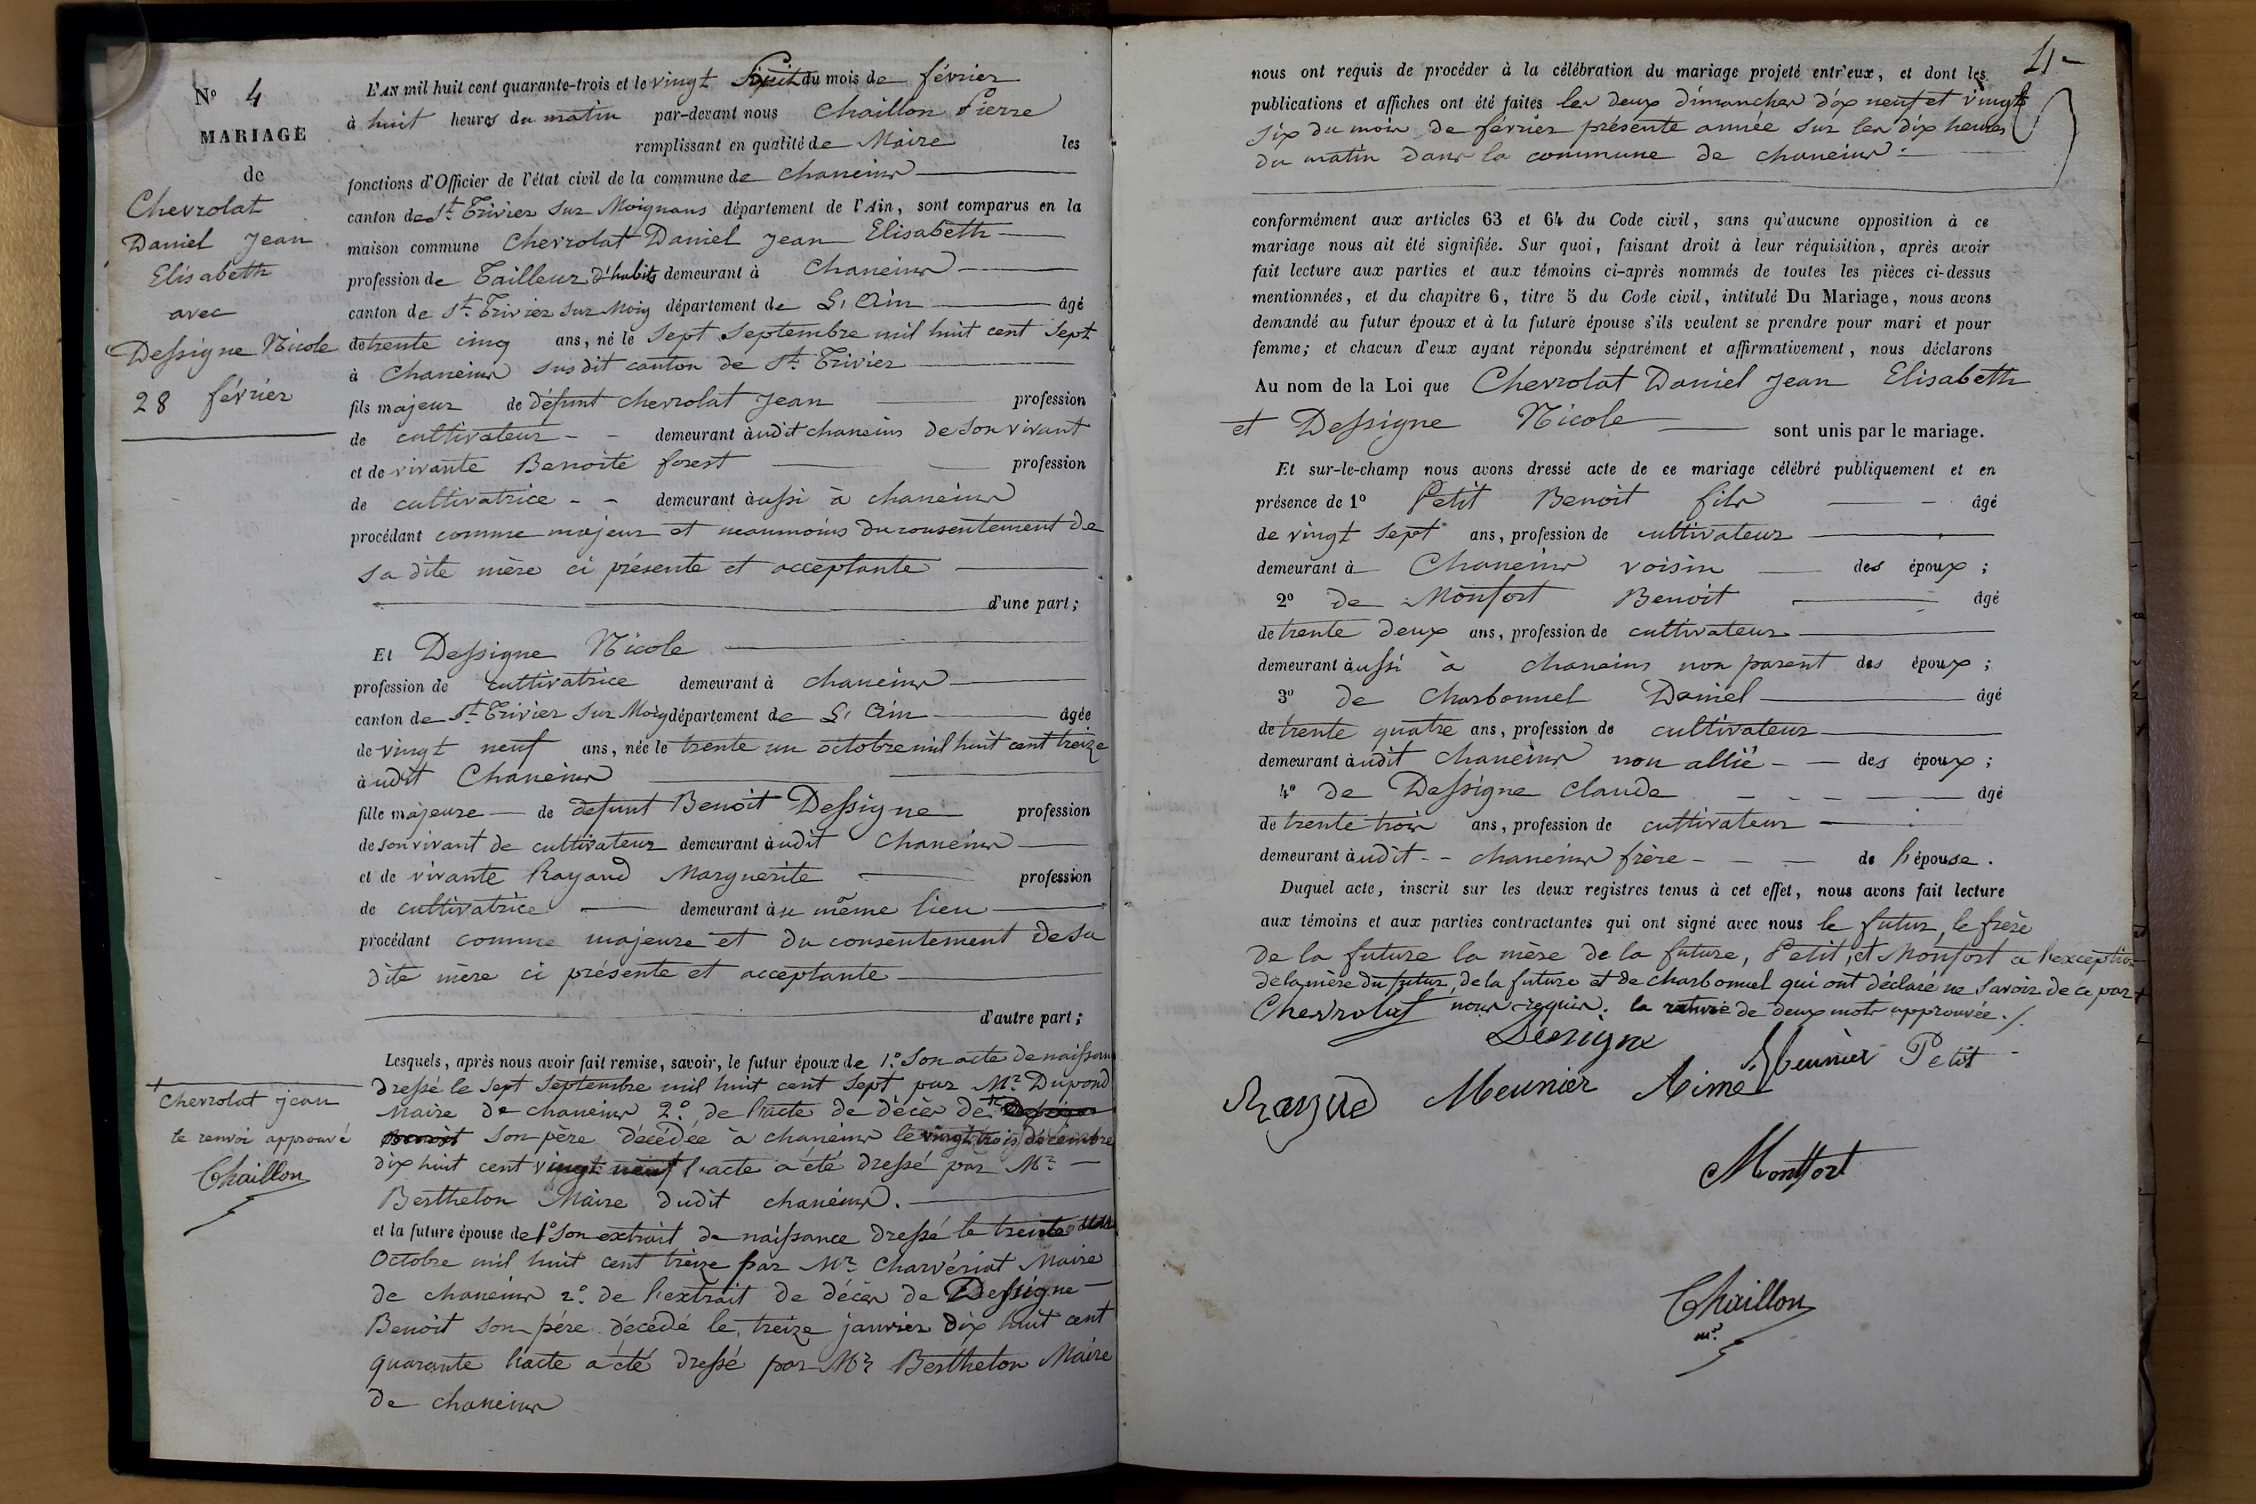 Nº 4
MARIAGE
de
Chevrolat
Daniel Jean
Elisabeth
avec
Dessigne Nicole
28 février
L'AN mil huit cent quarante-trois et le vingt huit du mois de février
à huit heures du matin par-devant nous Chaillon Pierre
remplissant en qualité de Maire les
fonctions d'Officier de l'état civil de la commune de chaneins
canton de St. Trivier sur Moignans département de l'Ain, sont comparus en la
maison commune Chevrolat Daniel Jean Elisabeth
profession de Tailleur d'habits demeurant à Chaneins
canton de St. Trivier sur Moig département de L'Ain âgé
de trente cinq ans, né le sept septembre mil huit cent sept
à Chaneins susdit canton de St. Trivier
fils majeur de défunt chevrolat Jean profession
de cultivateur - - demeurant àudit chaneins de son vivant
et de vivante Benoite forest profession
de cultivatrice - - demeurant àussi à chaneins
procédant comme majeur et neanmoins du consentement de
sa dite mère ci présente et acceptante
d'une part;
Et Dessigne Nicole
profession de cultivatrice demeurant à chaneins
canton de St. Trivier sur Moig département de L'Ain âgée
de vingt neuf ans, née le trente un octobre mil huit cent treize
àudit Chaneins
fille majeure de défunt Benoit Dessigne profession
de son vivant de cultivateur demeurant àudit Chaneins
et de vivante Rayand Marguerite profession
de cultivatrice demeurant àu même lieu
procédant comme majeure et du consentement de sa
dite mère ci présente et acceptante
d'autre part;
Lesquels, après nous avoir fait remise, savoir, le futur époux de 1.º Son acte de naissan
dressé le sept septembre mil huit cent sept par Mr. Dupond
Maire de chaneins 2.º de l'acte de décès de +
Benoit son père décédée à chanéins le vingt trois décembre
dix huit cent vingt neuf l'acte a été dressé par Mr.
Berthelon Maire dudit chanéins.
+ Chevrolat jean
le renvoi approuvé
Chaillon
et la future épouse de 1º Son extrait de naissance dressé le trente un
Octobre mil huit cent treize par Mr. Charvériat Maire
de chaneins 2.º de l'extrait de décès de Dessigne
Benoit son père décédé le treize janvier dix huit cent
quarante l'acte a été dressé par Mr. Berthelon Maire
de chaneins
4
nous ont requis de procéder à la célébration du mariage projeté entr'eux, et dont les
publications et affiches ont été faites les deux dimanches dix neuf et vingt
six du mois de février présente année sur les dix heures
du matin dans la commune de chaneins
conformément aux articles 63 et 64 du Code civil, sans qu'aucune opposition à ce
mariage nous ait été signifiée. Sur quoi, faisant droit à leur réquisition, après avoir
fait lecture aux parties et aux témoins ci-après nommés de toutes les pièces ci-dessus
mentionnées, et du chapitre 6, titre 5 du Code civil, intitulé Du Mariage, nous avons
demandé au futur époux et à la future épouse s'ils veulent se prendre pour mari et pour
femme; et chacun d'eux ayant répondu séparément et affirmativement, nous déclarons
Au nom de la Loi que Chevrolat Daniel Jean Elisabeth
et Dessigne Nicole sont unis par le mariage.
Et sur-le-champ nous avons dressé acte de ce mariage célébré publiquement et en
présence de 1º Petit Benoit fils âgé
de vingt sept ans, profession de cultivateur
demeurant à Chaneins voisin des époux;
2º de Monfort Benoit âgé
de trente deux ans, profession de cultivateur
demeurant àussi à chaneins non parent des époux;
3º de Charbonnel Daniel âgé
de trente quatre ans, profession de cultivateur
demeurant àudit chaneins non allié - - des époux;
4º de Dessigne Claude âgé
de trente trois ans, profession de cultivateur
demeurant àudit - - chaneins frère - - de l'épouse.
Duquel acte, inscrit sur les deux registres tenus à cet effet, nous avons fait lecture
aux témoins et aux parties contractantes qui ont signé avec nous le futur, le frère
de la future la mère de la future, Petit, et Monfort à l'exception
de la mère du futur, de la future et de charbonnel qui ont déclaré ne savoir de ce par +
Chevrolat nous requis. la rature de deux mots approuvée ./.
Désigne
Meunier Petit
Rayad Meunier Aimé
Montfort
Chaillon
mr.